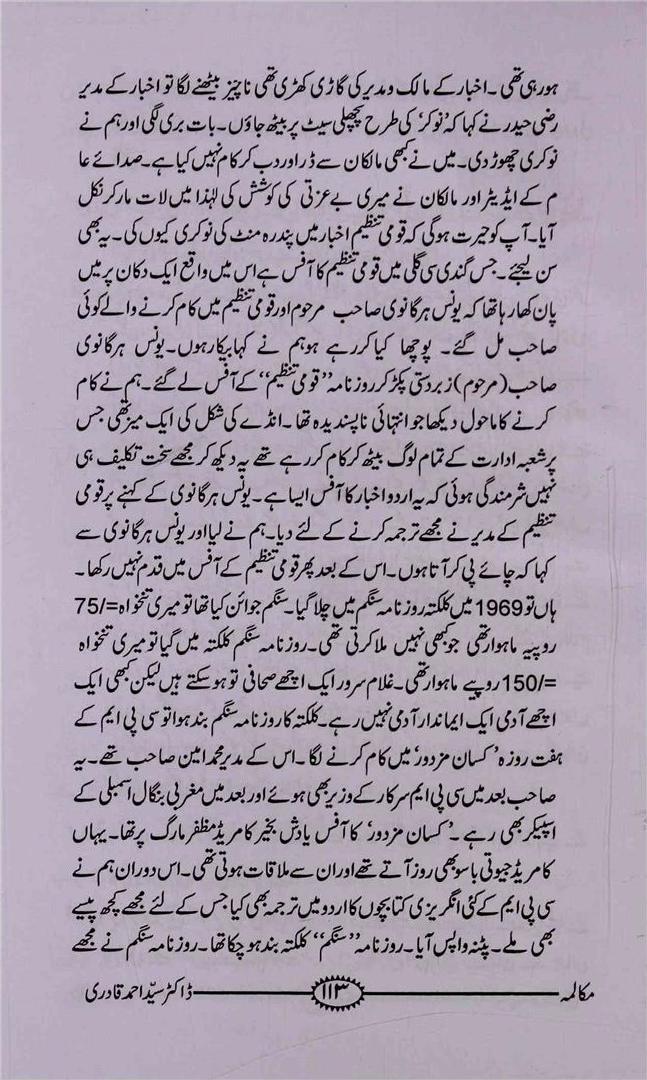 ہورہی تھی۔ اخبار کے مالک و مدیر کی گاڑی کھڑی تھی ناچیز بیٹھنے لگا تو اخبار کے مدیر
رضی حیدر نے کہا کہ ’نوکر‘ کی طرح پچھلی سیٹ پر بیٹھ جاؤں۔ بات بری لگی اور ہم نے
نوکری چھوڑ دی۔ میں نے کبھی مالکان سے ڈر اور دب کر کام نہیں کیا ہے۔ صدائے عا
م کے ایڈیٹر اور مالکان نے میری بے عزتی کی کوشش کی لہٰذا میں لات مار کر نکل
آیا۔ آپ کو حیرت ہوگی کہ قومی تنظیم اخبار میں پندرہ منٹ کی نوکری کیوں کی۔ یہ بھی
سن لیجئے۔ جس گندی سی گلی میں قومی تنظیم کا آفس ہے اس میں واقع ایک دکان پر میں
پان کھا رہا تھا کہ یونس ہرگانوی صاحب مرحوم اور قومی تنظیم میں کام کرنے والے کوئی
صاحب مل گئے۔ پوچھا کیا کر رہے ہو ہم نے کہا بیکار ہوں۔ یونس ہرگانوی
صاحب (مرحوم) زبردستی پکڑ کر روزنامہ ’’قومی تنظیم‘‘ کے آفس لے گئے۔ ہم نے کام
کرنے کا ماحول دیکھا جو انتہائی ناپسندیدہ تھا۔ انڈے کی شکل کی ایک میز تھی جس
پر شعبہ ادارت کے تمام لوگ بیٹھ کر کام کر رہے تھے یہ دیکھ کر مجھے سخت تکلیف ہی
نہیں شرمندگی ہوئی کہ یہ اردو اخبار کا آفس ایسا ہے۔ یونس ہرگانوی کے کہنے پر قومی
تنظیم کے مدیر نے مجھے ترجمہ کرنے کے لئے دیا۔ ہم نے لیا اور یونس ہرگانوی سے
کہا کہ چائے پی کر آتا ہوں۔ اس کے بعد پھر قومی تنظیم کے آفس میں قدم نہیں رکھا۔
ہاں تو 1969 میں کلکتہ روزنامہ سنگم میں چلا گیا۔ سنگم جوائن کیا تھا تو میری تنخواہ =/75
روپیہ ماہوار تھی جو کبھی نہیں ملا کرتی تھی۔ روزنامہ سنگم کلکتہ میں گیا تو میری تنخواہ
=/150 روپے ماہوار تھی۔ غلام سرور ایک اچھے صحافی تو ہو سکتے ہیں لیکن کبھی ایک
اچھے آدمی ایک ایماندار آدمی نہیں رہے۔ کلکتہ کا روزنامہ سنگم بند ہوا تو سی پی ایم کے
ہفت روزہ ’کسان مزدور‘ میں کام کرنے لگا۔ اس کے مدیر محمد امین صاحب تھے۔ یہ
صاحب بعد میں سی پی ایم سرکار کے وزیر بھی ہوئے اور بعد میں مغربی بنگال اسمبلی کے
اسپیکر بھی رہے۔ ’کسان مزدور‘ کا آفس یادش بخیر کامریڈ مظفر مارگ پر تھا۔ یہاں
کامریڈ جیوتی باسو بھی روز آتے تھے اور ان سے ملاقات ہوتی تھی۔ اس دوران ہم نے
سی پی ایم کے کئی انگریزی کتابچوں کا اردو میں ترجمہ بھی کیا جس کے لئے مجھے کچھ پیسے
بھی ملے۔ پٹنہ واپس آیا۔ روزنامہ ’’سنگم‘‘ کلکتہ بند ہو چکا تھا۔ روزنامہ سنگم نے مجھے
مکالمہ ۱۱۳ ڈاکٹر سیّد احمد قادری